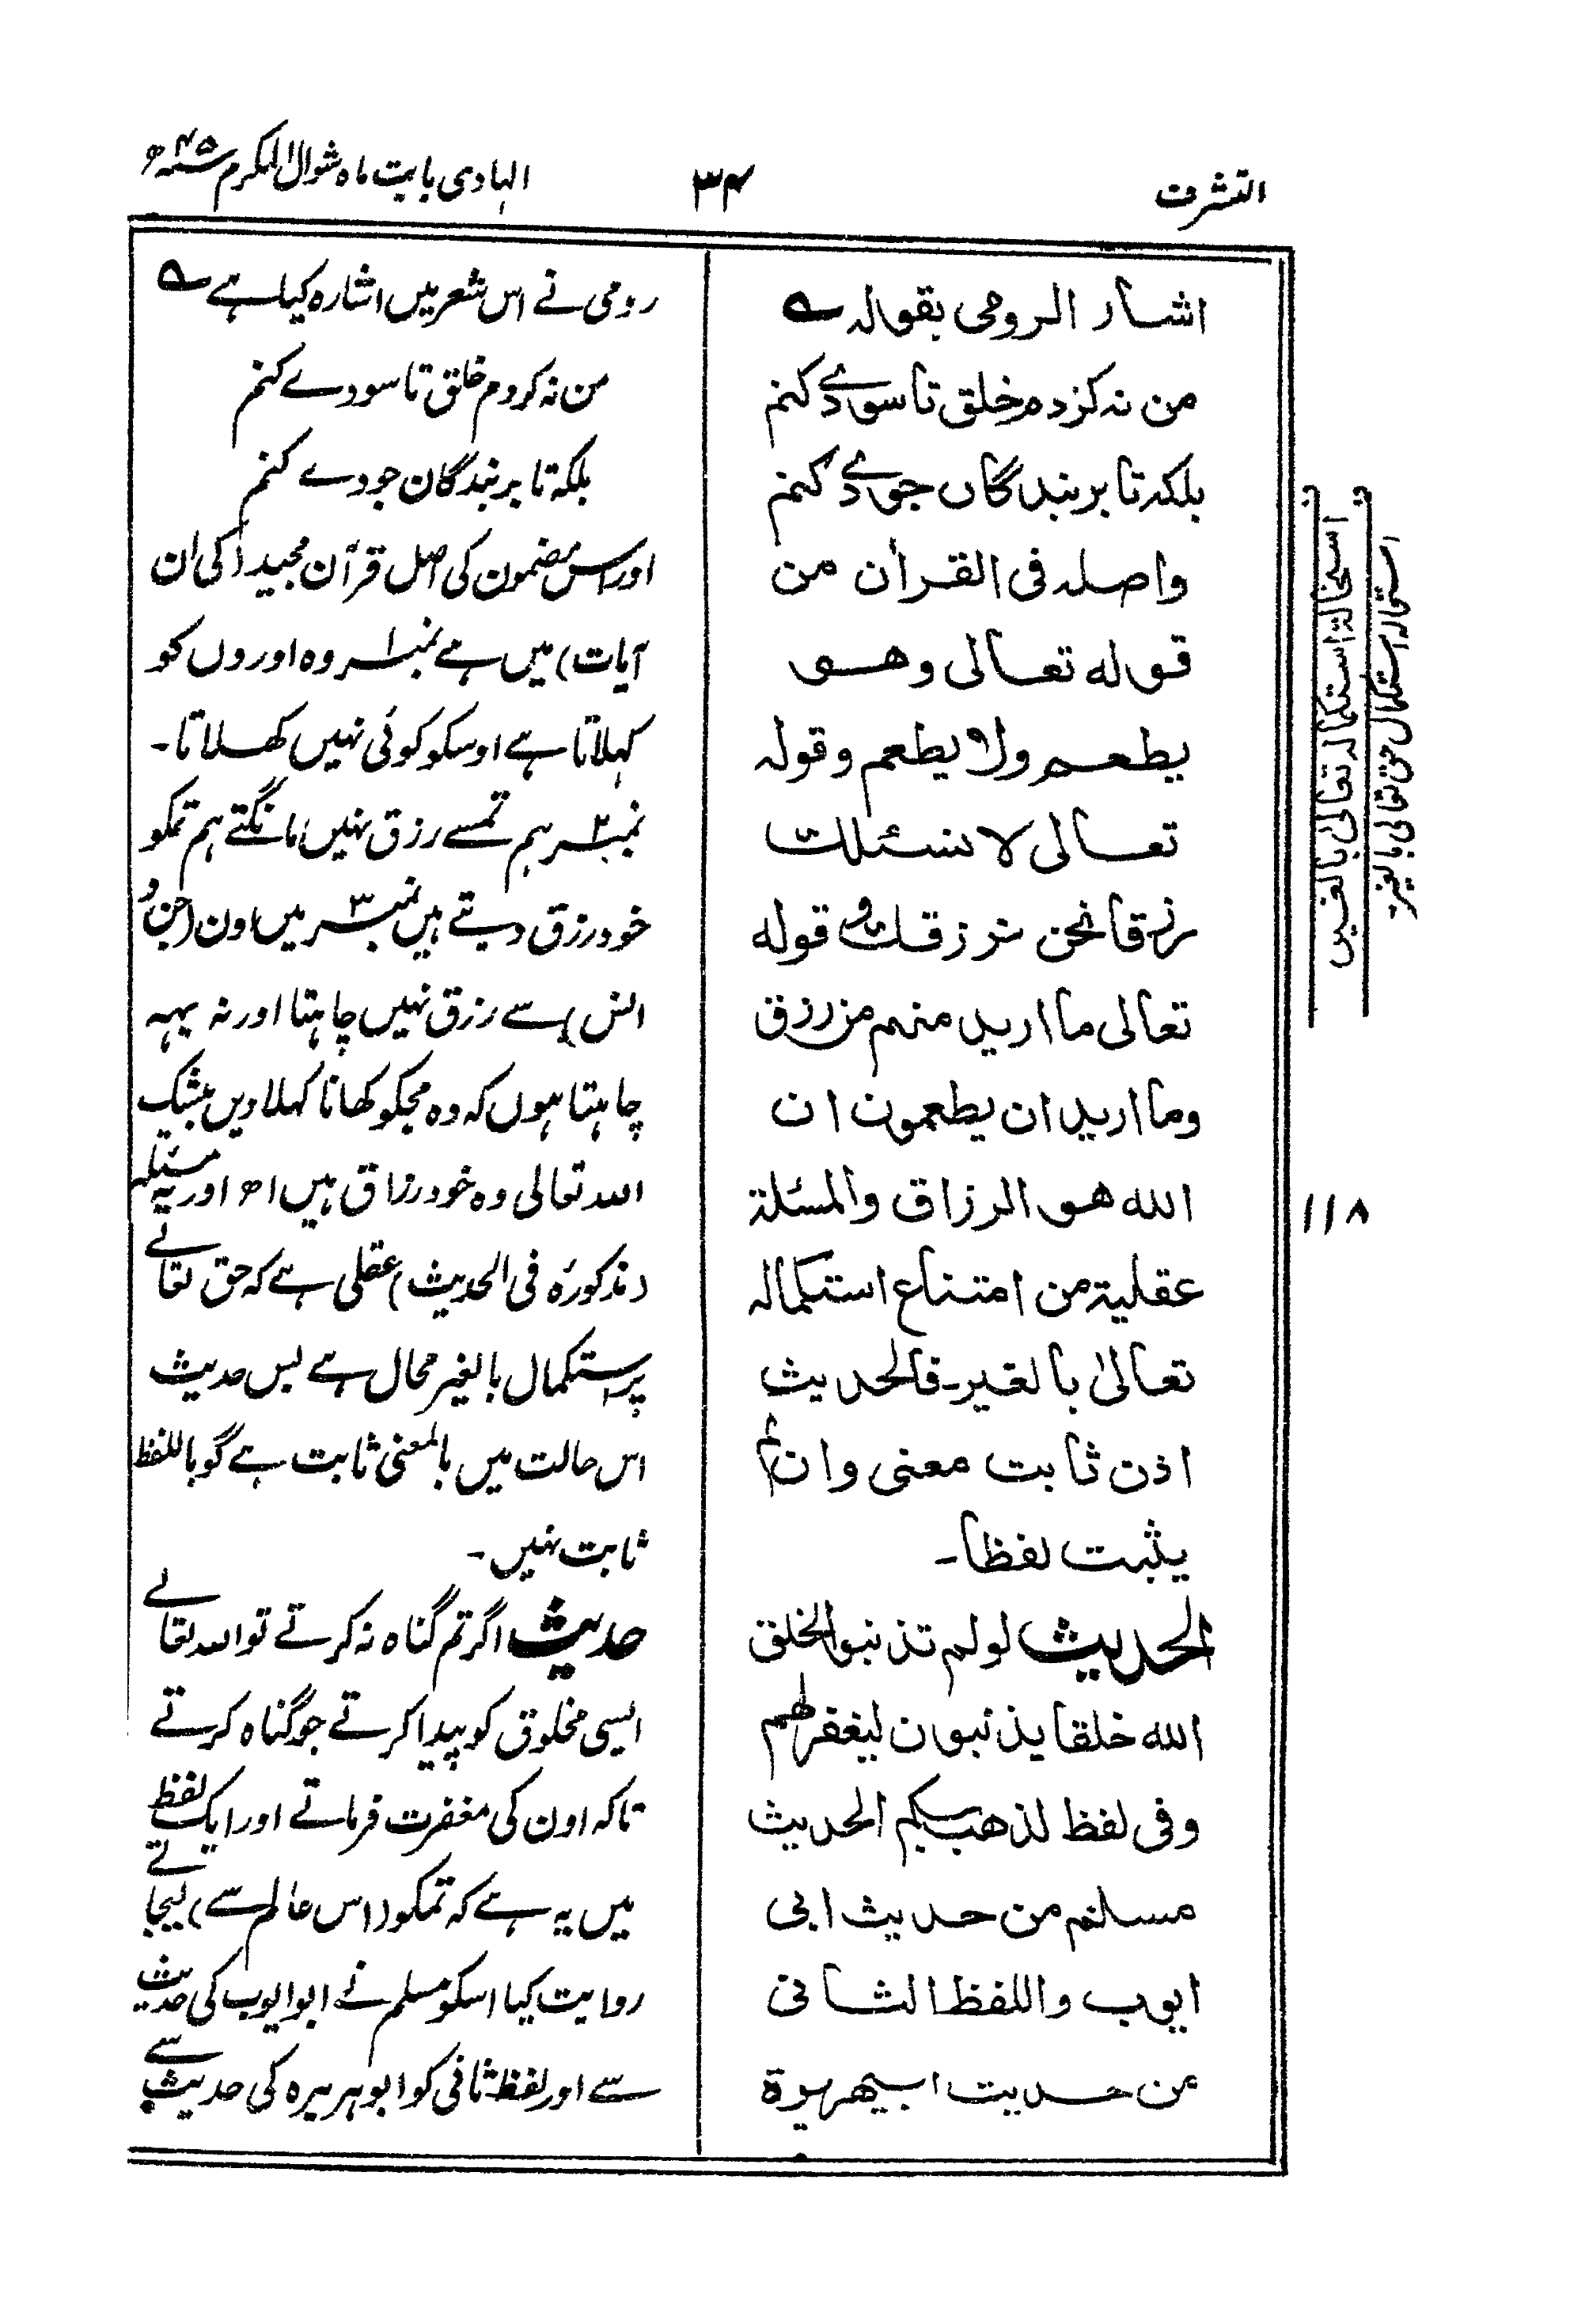 التشرف
۳۴
الہادی بابت ماہ شوال المکرم سنہ ۴۵ھ
اشار الرومی بقولہ ؎
من نہ کردم خلق تا سودے کنم
بلکہ تا بر بندگاں جودے کنم
واصلہ فی القرآن من
قولہ تعالی وهو
یطعم ولا یطعم وقولہ
تعالی لا نسئلك
رزقا نحن نرزقك وقوله
تعالی ما ارید منہم من رزق
وما ارید ان یطعمون ان
الله هو الرزاق والمسئلۃ
عقلیۃ من امتناع استکمالہ
تعالیٰ بالغیر۔ فالحدیث
اذن ثابت معنی وان لم
یثبت لفظا۔
الحدیث لو لم تذنبوا لخلق
الله خلقا یذنبون لیغفر لهم
وفی لفظ لذهب بکم الحدیث
مسلم من حدیث ابی
ایوب واللفظ الثانی
من حدیث ابیهریرۃ
رومی نے اس شعر میں اشارہ کیا ہے ؎
من نہ کردم خلق تا سودے کنم
بلکہ تا بر بندگان جودے کنم
اور اس مضمون کی اصل قرآن مجید (کی ان
آیات) میں ہے نمبر۱ وہ اوروں کو
کہلاتا ہے اوسکو کوئی نہیں کھلاتا۔
نمبر۲ ہم تمسے رزق نہیں مانگتے ہم تمکو
خود رزق دیتے ہیں نمبر۳ میں اون (جن و
انس) سے رزق نہیں چاہتا اور نہ یہہ
چاہتا ہوں کہ وہ مجکو کھانا کہلاویں بیشک
اللہ تعالی وہ خود رزاق ہیں اھ اور یہ مسئلہ
(مذکورہ فی الحدیث) عقلی ہے کہ حق تعالے
پر استکمال بالغیر محال ہے بس حدیث
اس حالت میں بالمعنی ثابت ہے گو باللفظ
ثابت نہیں۔
حدیث اگر تم گناہ نہ کرتے تو اللہ تعالے
ایسی مخلوق کو پیدا کرتے جو گناہ کرتے
تاکہ اون کی مغفرت فرماتے اور ایک لفظ
میں یہ ہے کہ تمکو (اس عالم سے) لیجاتے
روایت کیا اسکو مسلم نے ابو ایوب کی حدیث
سے اور لفظ ثانی کو ابو ہریرہ کی حدیث سے
استحالۃ استکمالہ تعالیٰ بالغیر
استحالہ استکمال حق تعالی بالغیر
۱۱۸